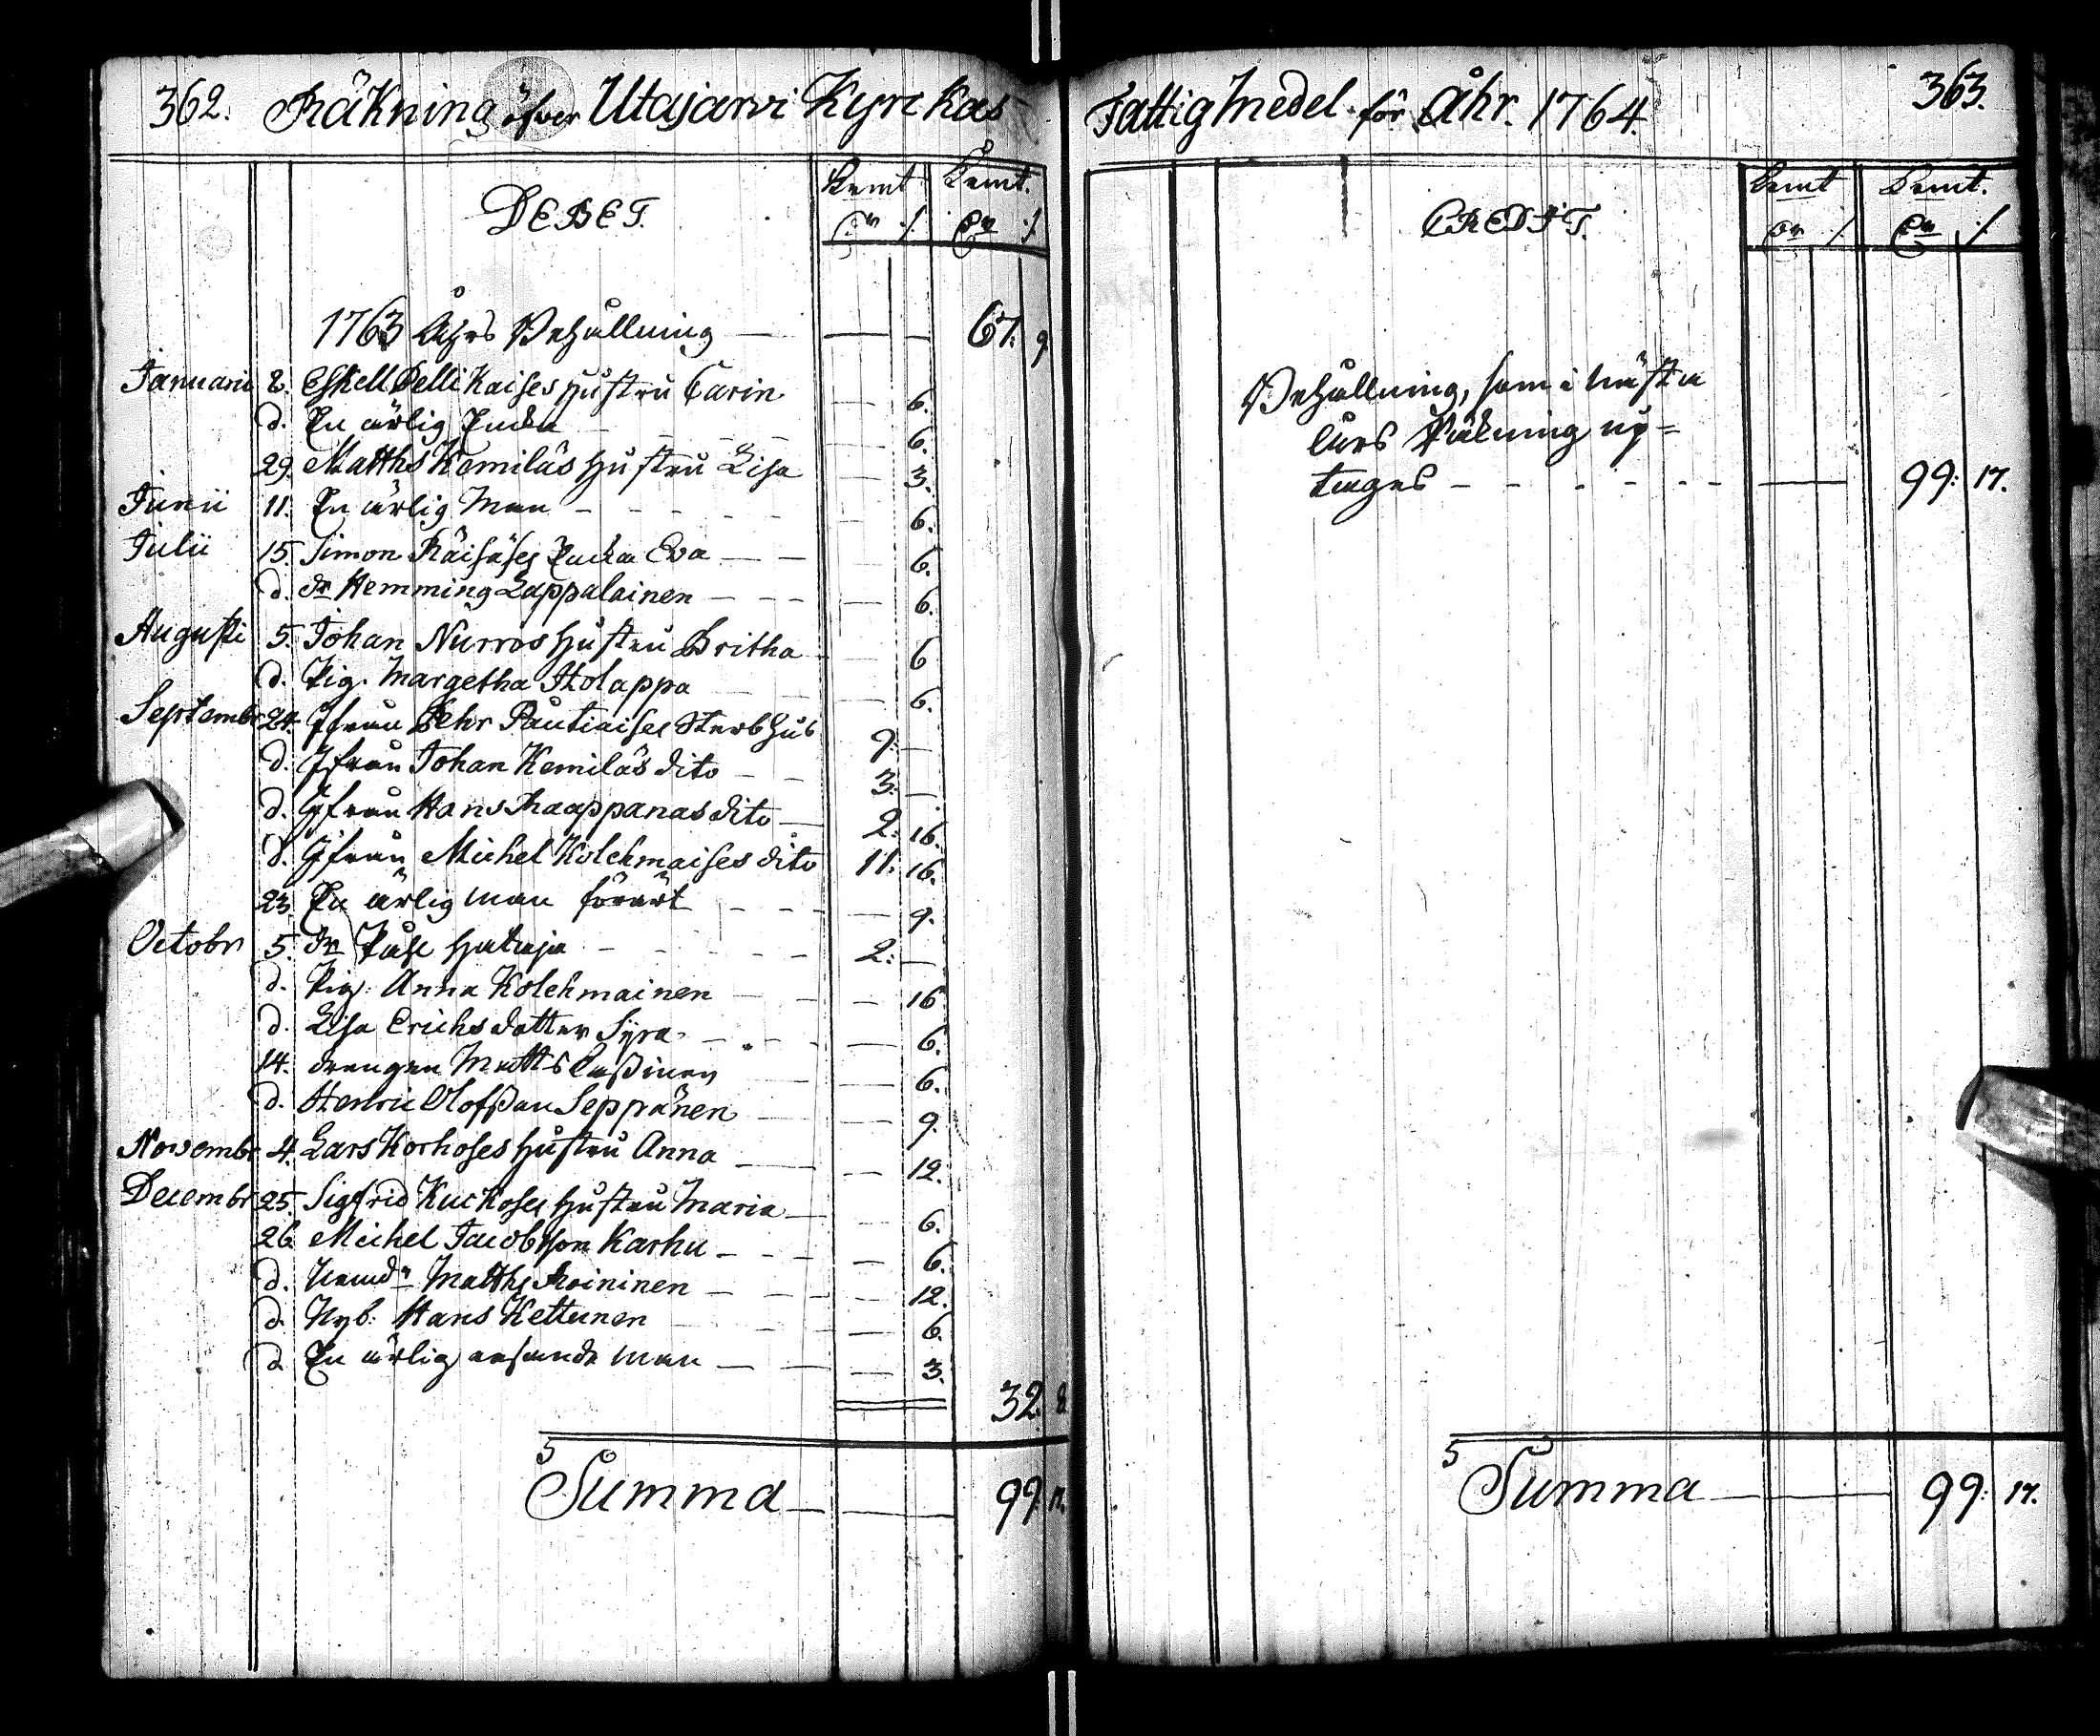 362. Räkning öfver Utajarvi Kyrckas
DEBET.
Kvmt Kvmt.
1763 Åhrs Behållning — — — 67. 9
Januarii 8. Eskell Pellikaises Hustru Carin — 6.
d. En ärlig Encka — 6.
29. Matths Kemiläs Hustru Lisa — 3.
Junii 11. En ärlig Man — 6.
Julii 15. Simon Räisäses Encka Eva — 6.
d. dr Hemming Lappalainen — 6.
Augusti 5. Johan Nurros Hustru Britha — 6
d. Pig. Margetha Holappa — 6.
Septembr 24. Ifrån Pehr Pautiaises Sterbhus 9. —
d. Ifrån Johan Kemiläs dito — 3. —
d. Ifrån Hans Maappanas dito — 2. 16.
d. Ifrån Michel Kolehmaises dito 11. 16.
23. En ärlig man förärt — 9.
Octobr 5. dr Påhl Hataja — 2. —
d. Pig. Anna Kolehmainen — 16
d. Lisa Erichs dotter Syra — 6.
14. drengen Matts Laßinen — 6.
d. Henric Olofßon Seppänen — 9.
Novembr 4. Lars Korhoses Hustru Anna — 12.
Decembr 25. Sigfrid Kuckoses Hustru Maria — 6.
26. Michel Jacobsson Karhu — 6.
d. Nämdn Matths Moininen — 12.
d. Nyb. Hans Kettunen — 6.
d. En ärlig resande man — 3.
32. 8.
Summa — 99. 17.
Fattig Medel för Åhr. 1764. 363.
CREDIT.
Kvmt Kvmt.
Behållning, som i nästa
års Räkning up=
tages — — — 99. 17.
Summa — 99. 17.